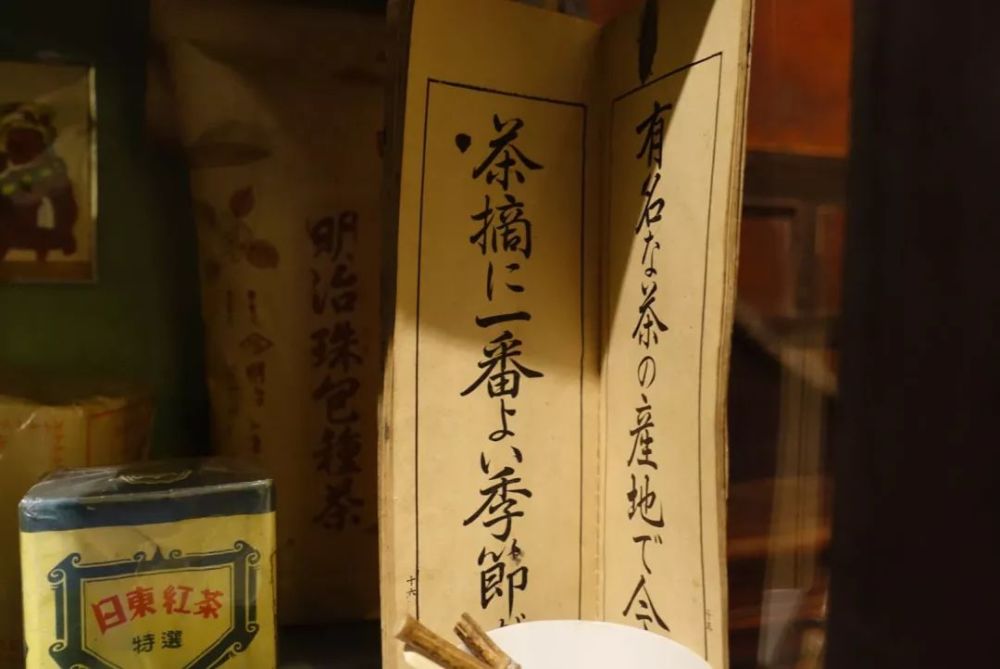 有名な茶の産地で今
茶摘に一番よい季節
十六
明治珠包種茶
日東紅茶
特選